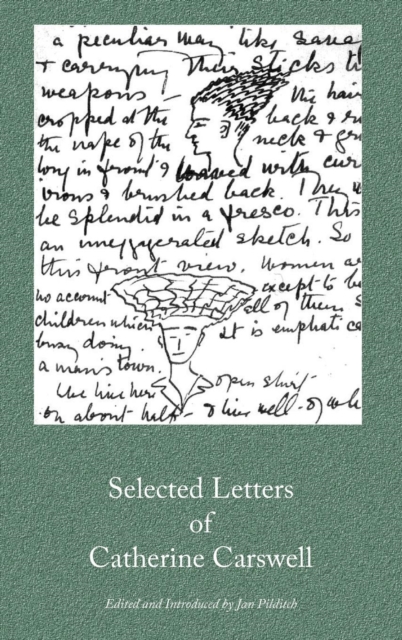 a peculiar way like
& carrying their sticks
weapons – the hair
cropped at the back &
the nape of the neck &
long in front & waved with
irons & brushed back. They
be splendid in a fresco. This
an unexaggerated sketch. So
this front view. Women
no account except to
children which all of them
busy doing It is emphatic
a man's town.
We live here open shirt
on about half - & live well - of
Selected Letters
of
Catherine Carswell
Edited and Introduced by Jan Pilditch